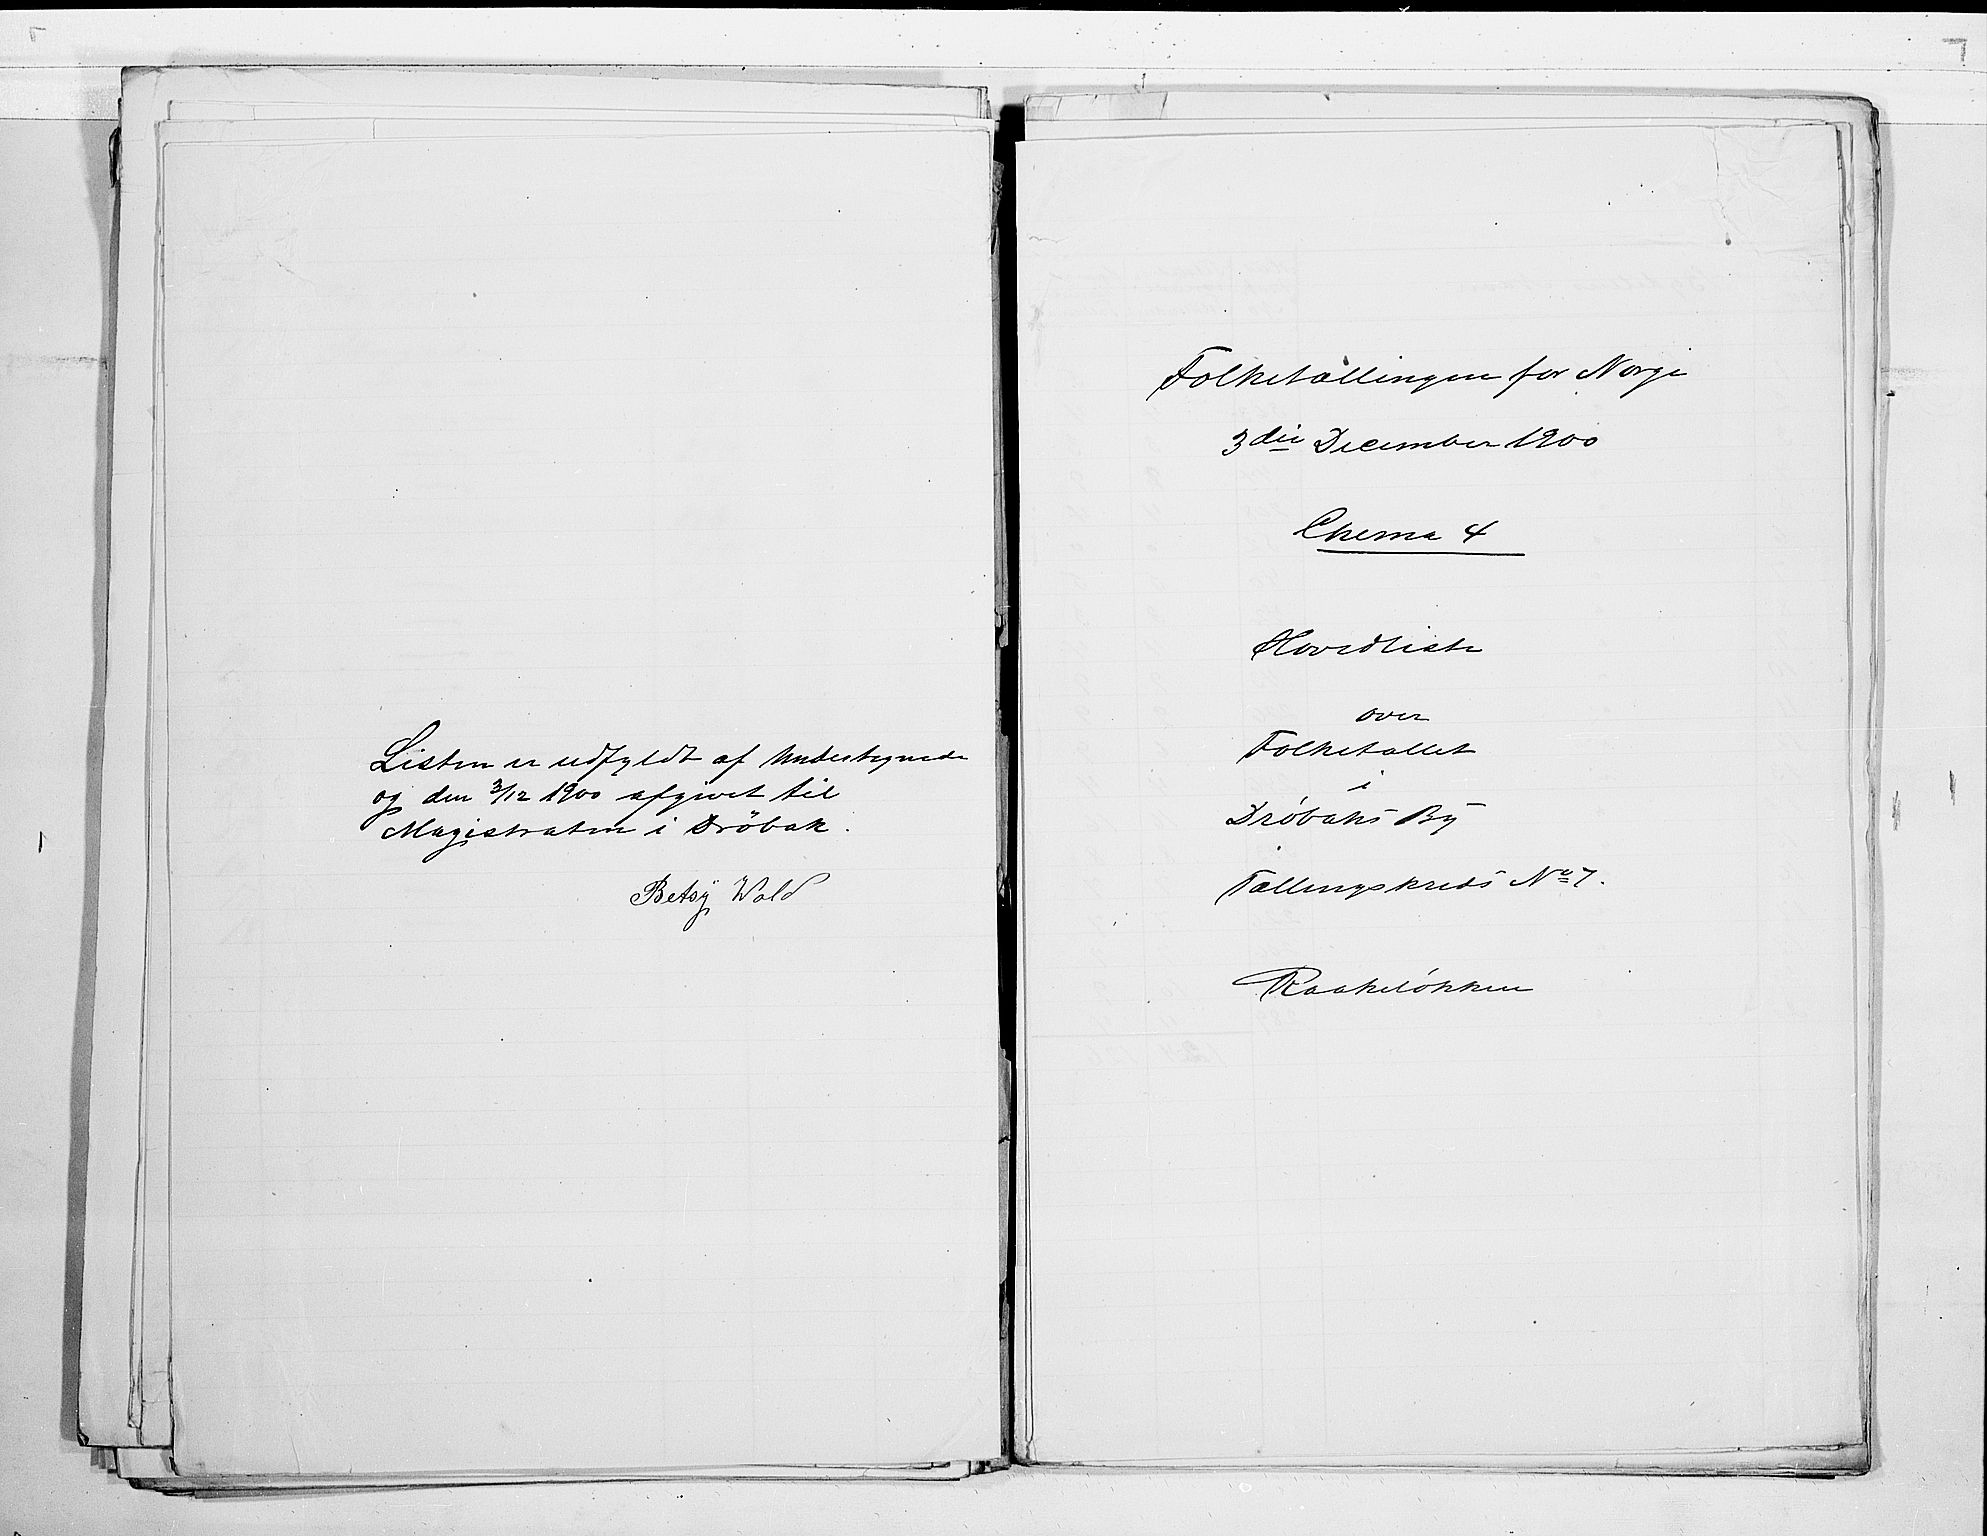 Listen er udfyldt af Undertegnede
og den 3/12 1900 afgivet til
Magistraten i Drøbak.
Betsÿ Wold
Folketællingen for Norge
3die December 1900
Chema 4
Hovedliste
over
Folketallet
i
Drøbaks By
Tællingskreds No 7.
Raakeløkken